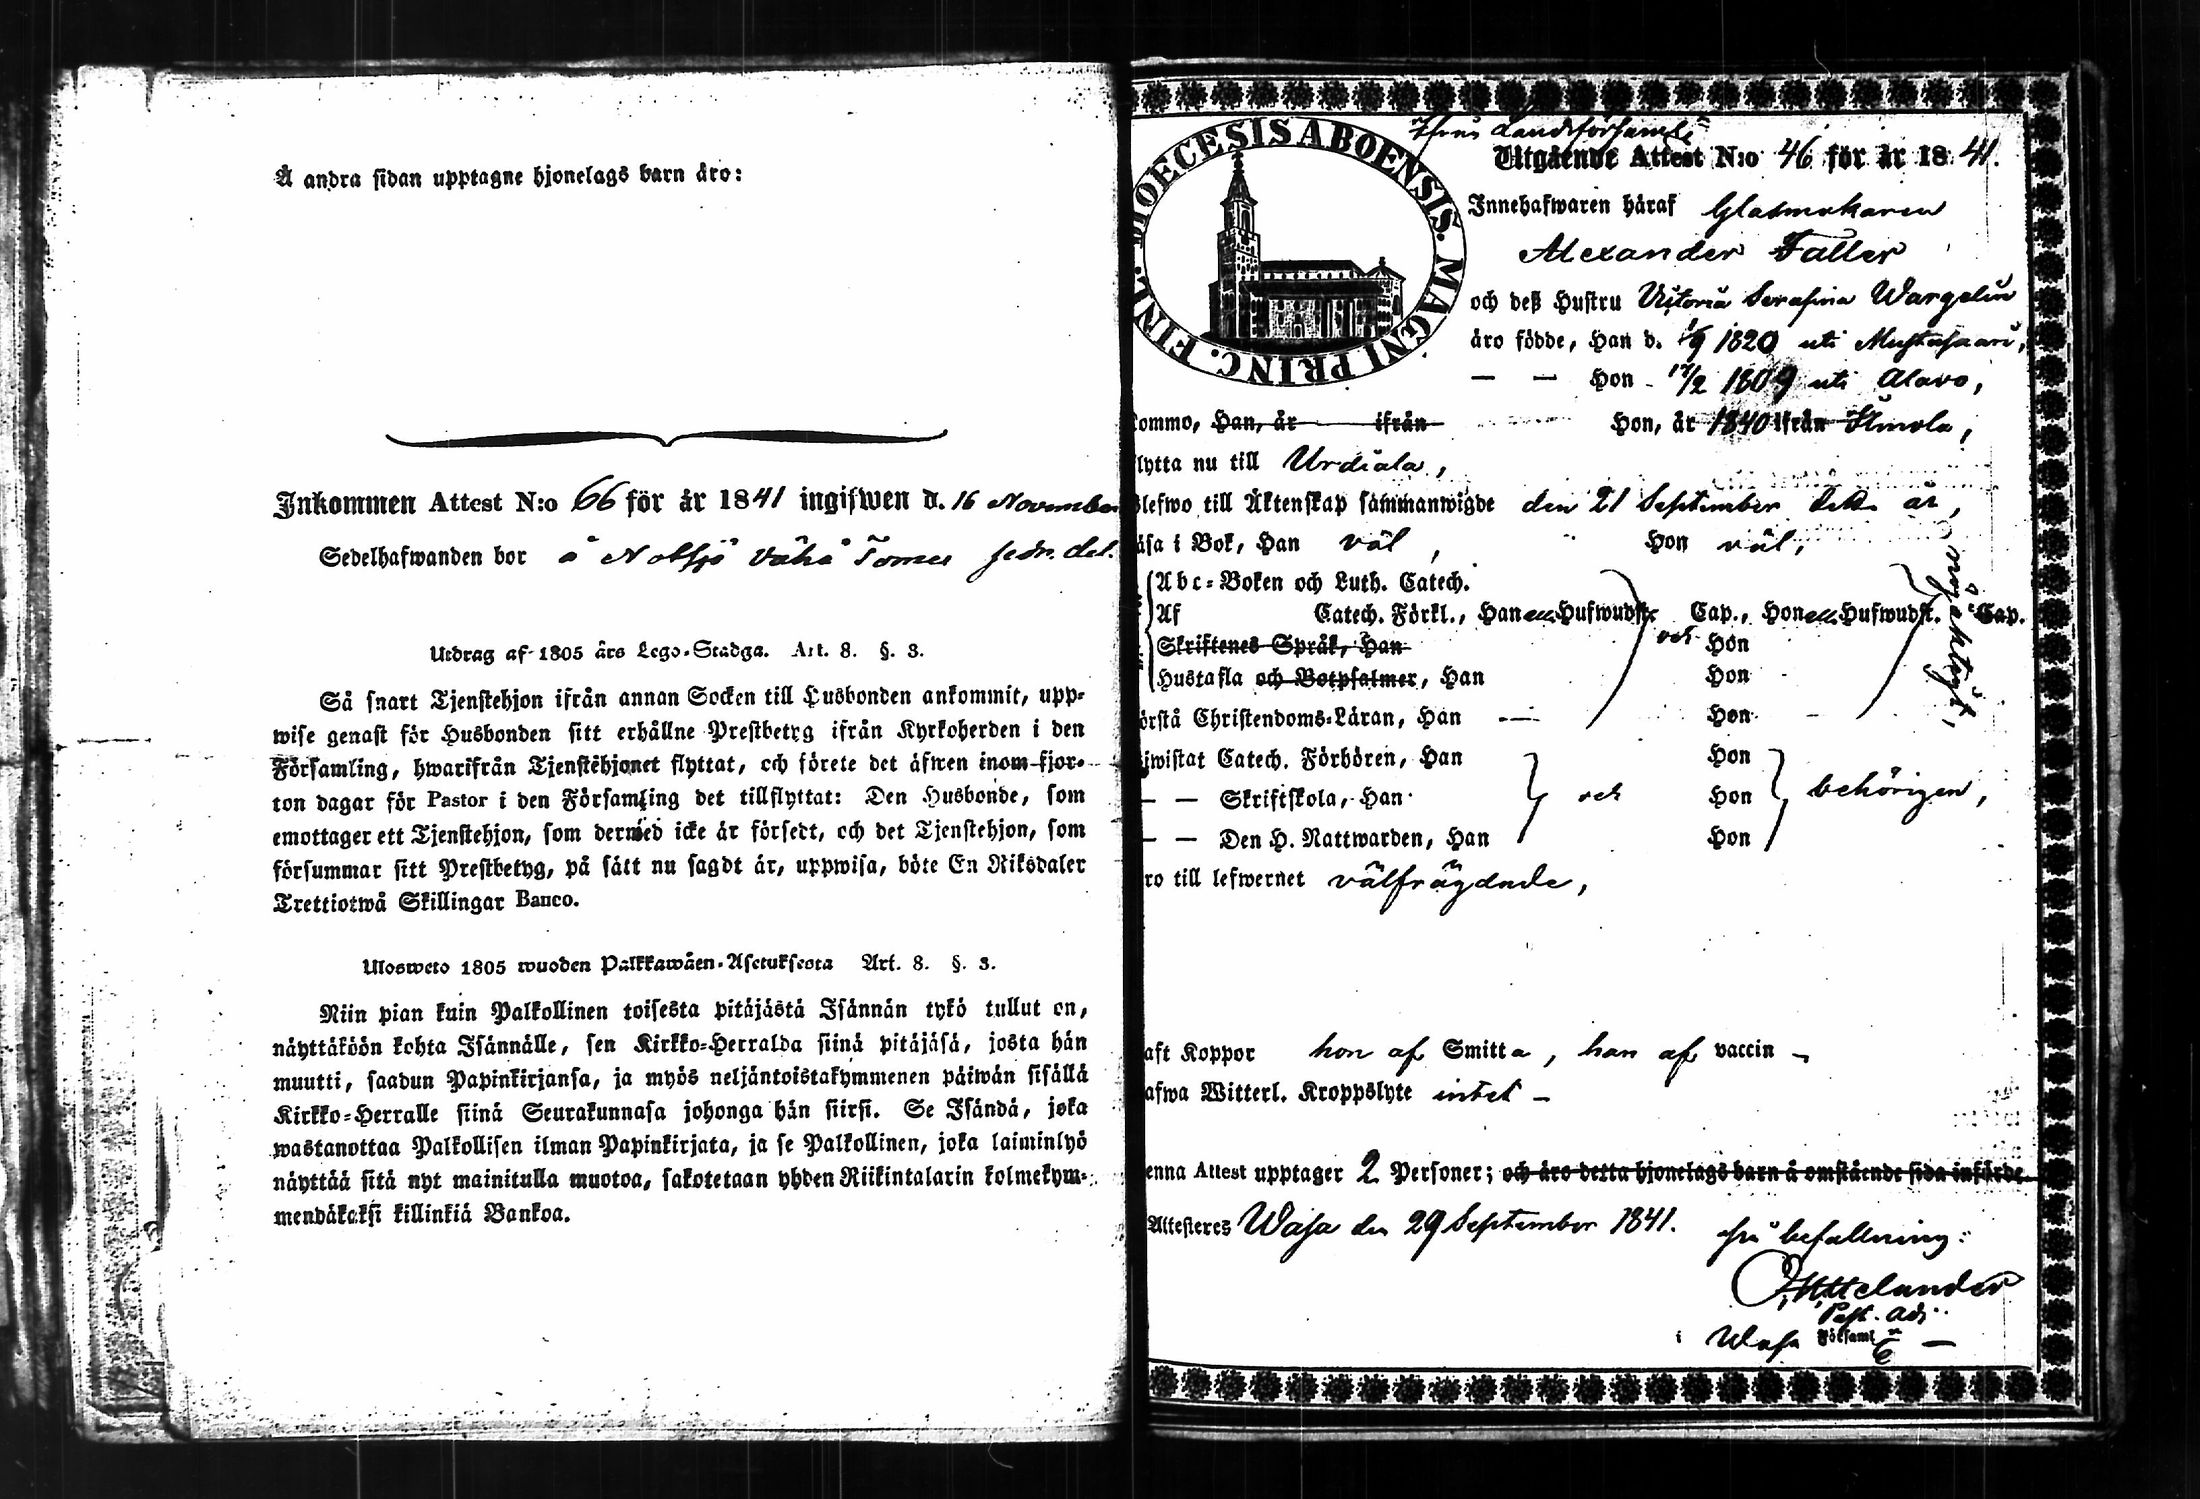 Å andra sidan upptagne hjonelags barn äro:
Inkommen Attest N:o 66 för år 1841 ingifwen d. 16 November
Sedelhafwanden bor å Notsjö Vähä Tomee
Utdrag af 1805 års Lego-Stadga. Art. 8. §. 3.
Så snart Tjenstehjon ifrån annan Socken till Husbonden ankommit, upp-
wise genast för Husbonden sitt erhållne Prestbetyg ifrån Kyrkoherden i den
Församling, hwarifrån Tjenstehjonet flyttat, och förete det äfwen inom fjor-
ton dagar för Pastor i den Församling det tillflyttat: Den Husbonde, som
emottager ett Tjenstehjon, som dermed icke är försedt, och det Tjenstehjon, som
försummar sitt Prestbetyg, på sätt nu sagdt är, uppwisa, böte En Riksdaler
Trettiotwå Skillingar Banco.
Ulosweto 1805 wuoden Palkkawäen-Asetuksesta Art. 8. §. 3.
Niin pian kuin Palkollinen toisesta pitäjästä Isännän tykö tullut on,
näyttäköön kohta Isännälle, sen Kirkko-Herralda siinä pitäjäsä, josta hän
muutti, saadun Papinkirjansa, ja myös neljäntoistakymmenen päiwän sisällä
Kirkko-Herralle siinä Seurakunnasa johonga hän siirsi. Se Isändä, joka
wastanottaa Palkollisen ilman Papinkirjata, ja se Palkollinen, joka laiminlyö
näyttää sitä nyt mainitulla muotoa, sakotetaan yhden Riikintalarin kolmekym-
mendäkaksi killinkiä Bankoa.
DIOECESIS ABOENSIS. MAGNI PRINC. FINL.
Landsförsaml
Utgående Attest N:o 46 för år 1841.
Innehafwaren häraf Glasmakaren
Alexander Faller
och deß Hustru Victoria Serafina Wargelin
äro födde, Han d. 1/9 1820 uti Mustasaari,
— — Hon 17/2 1809 uti Alavo,
ommo, Han, år ifrån Hon, år 1840 ifrån Ilmola,
lytta nu till Urdiala,
lefwo till Äktenskap sammanwigde den 21 September detta år,
äsa i Bok, Han väl, Hon väl,
Abc-Boken och Luth. Catech.
Af Catech. Förkl., Han Hufwudst. Cap., Hon Hufwudst. Cap.
Skriftenes Språk, Han och Hon
Hustafla och Botpsalmer, Han Hon
nöjaktigt,
örstå Christendoms-Läran, Han — Hon
iwistat Catech. Förhören, Han Hon
— — Skriftskola, Han och Hon behörigen,
— — Den H. Nattwarden, Han Hon
ro till lefwernet välfrägdade,
aft Koppor hon af Smitta, han af vaccin —
afwa Witterl. Kroppslyte intet —
enna Attest upptager 2 Personer; och äro detta hjonelags barn å omstående sida införde.
Attesteres Wasa den 29 September 1841.
på befallning:
Past. Adj.
i Wasa Församl